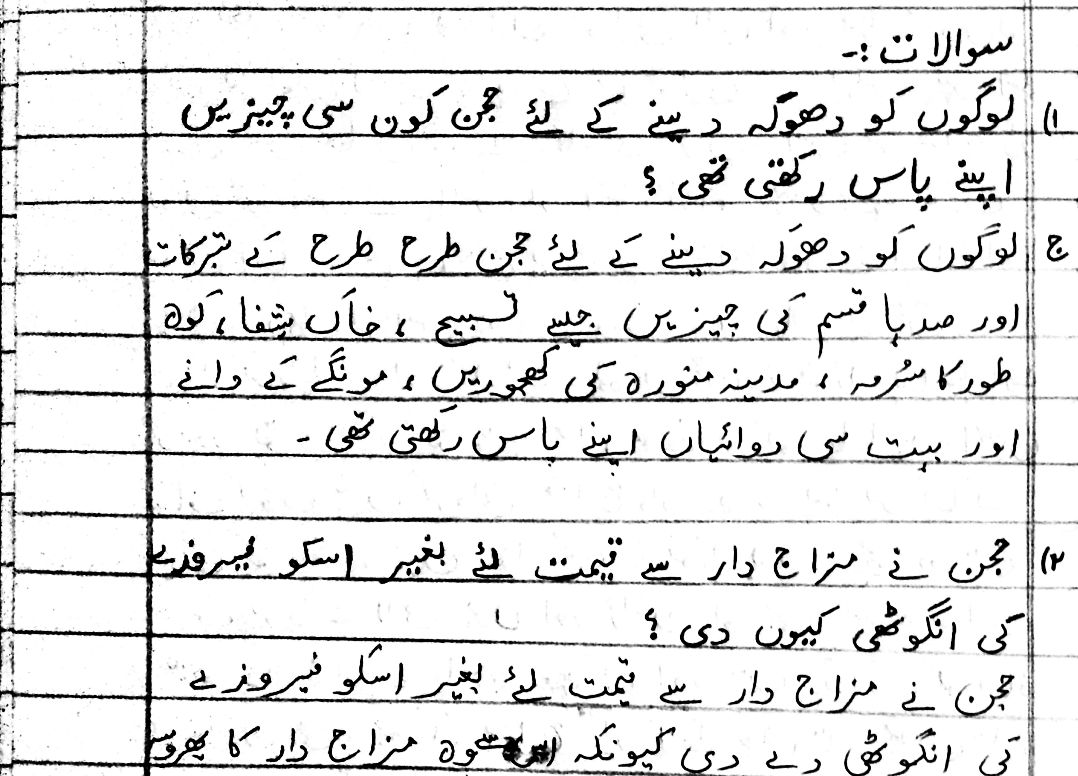 سوالات :-
۱) لوگوں کو دھوکہ دینے کے لئے حجن کون سی چیزیں
اپنے پاس رکھتی تھی ؟
ج لوگوں کو دھوکہ دینے کے لئے حجن طرح طرح کے تبرکات
اور صدہا قسم کی چیزیں جیسے تسبیح ، خاک شفا ، کوہ
طور کا سُرمہ ، مدینہ منورہ کی کھجوریں ، مونگے کے دانے
اور بہت سی دوائیاں اپنے پاس رکھتی تھی ۔
۲) حجن نے مزاج دار سے قیمت لئے بغیر اسکو فیرفزے
کی انگوٹھی کیوں دی ؟
حجن نے مزاج دار سے قیمت لئے بغیر اسکو فیروزے
کی انگوٹھی دے دی کیونکہ وہ مزاج دار کا بھروسہ